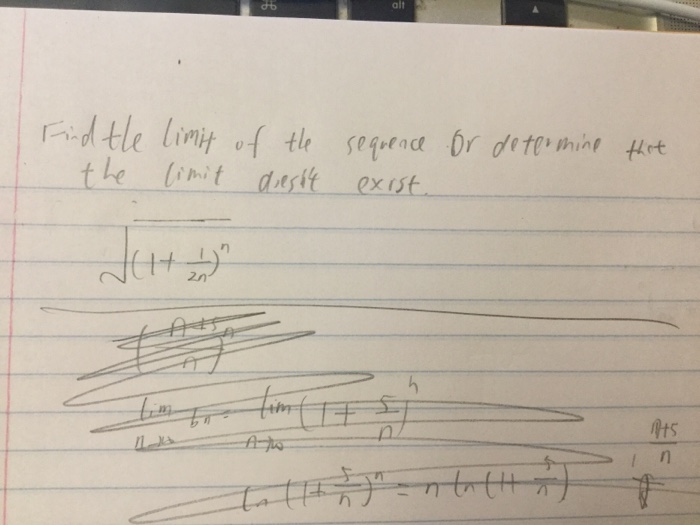 ⌘ alt ▲
Find the limit of the sequence or determine that
the limit doesn't exist.
√(1 + 1/2n)^n
(n+5/n)^n
lim n→∞ bn = lim n→∞ (1 + 5/n)^n
n+5/n
ln (1 + 5/n)^n = n ln (1 + 5/n)